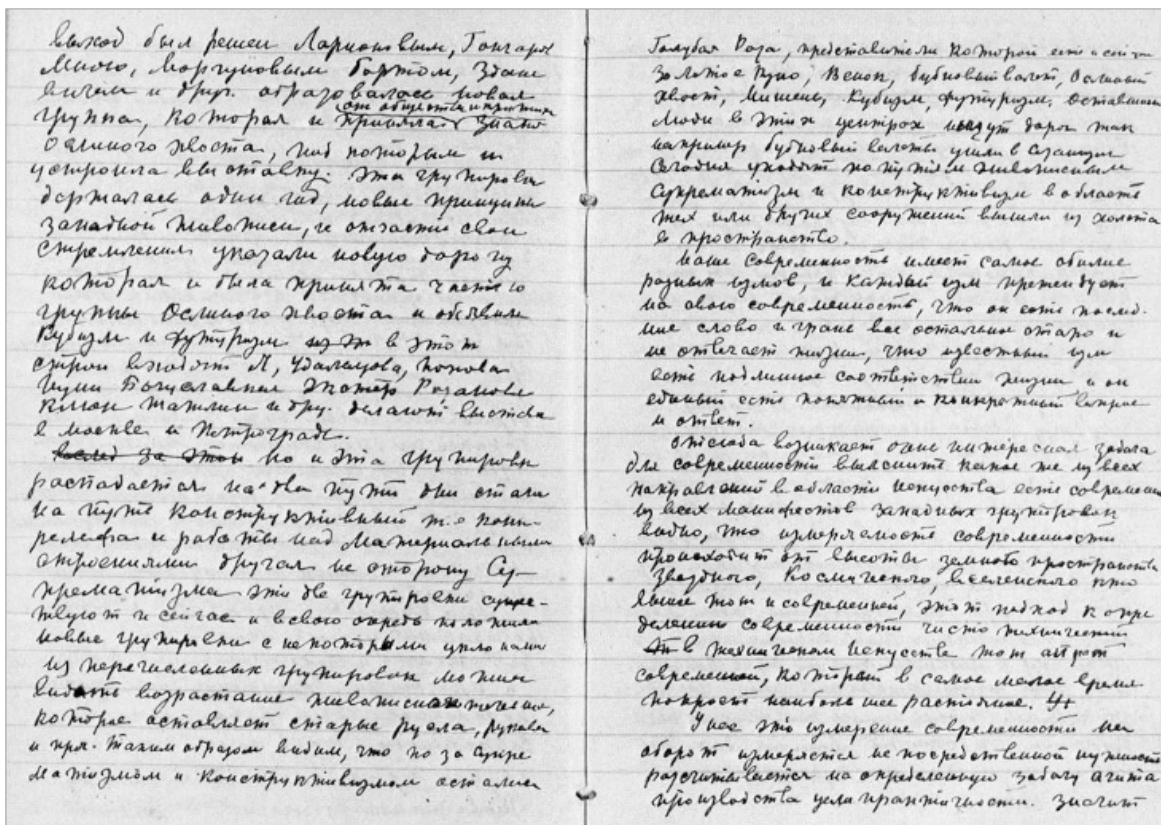 выход был решен Ларионовым, Гончаро
Моргуновым Бартом, Здане
вичем и друг. образовалась новая
от общества и критики
группа, которая и приняла
Ослиного хвоста, под которым и
устроила выставку. Эта групировка
держалась один год, новые принципы
западной живописи, и отчасти свои
стремления указали новую дорогу
которая и была принята частью
группы Ослиного хвоста и
Кубизм и футуризм в этот
строй входят Я, Удальцова, Попова
Пуни Богуславская Экстер Розанова
Клюн Татлин и др. делают выставки
в Москве и Петрограде.
вслед за этой но и эта групировка
распадается на два пути одни стали
на путь конструктивный т.е
рельефа и работы над материальными
строениями другая на сторону Су-
прематизма эти две групировки суще-
ствуют и сейчас и в свою очередь положили
новые групировки с некоторыми уклонами
из перечисленных групировок можно
видеть возрастание живописного
которое оставляет старые русла, рукава
и проч. таким образом видим, что по за супре
матизмом и конструктивизмом остались
Голубая Роза, представители которой есть и сейчас
золотое Руно, Венок, бубновый валет, Ослиный
хвост, Мишень, Кубизм, футуризм. оставшиеся
люди в этих центрах ищут дорог так
например бубновый валеты ушли в Сезанизм
сегодня уходят по путям живописным
Супрематизм и конструктивизм в области
тех или других сооружений вышли из холста
в пространство.
наше современность имеет самое обилие
разных измов, и каждый изм претендует
на свою современность, что он есть послед-
ние слово и грань все остальное старо и
не отвечает жизни, что известный изм
есть подлинное соответствие жизни и он
единый есть понятный и конкретный вопрос
и ответ.
отсюда возникает одна интересная задача
для современности выяснить какое же из всех
направлений в области искусства есть современно
из всех манифестов западных групировок
видно, что измеряемость современности
происходит от высоты земного пространства
звездного, космического, вселенского кто
выше тот и современней, этот подход к опре
делению современности чисто технический
в техническом искусстве тот аппарат
современный, который в самое малое время
покроет наибольшее расстояние.
У нее это измерение современности на
оборот измеряется непосредственной нужностью
расчитывается на определенную задачу агита
производства цели практичности. значит